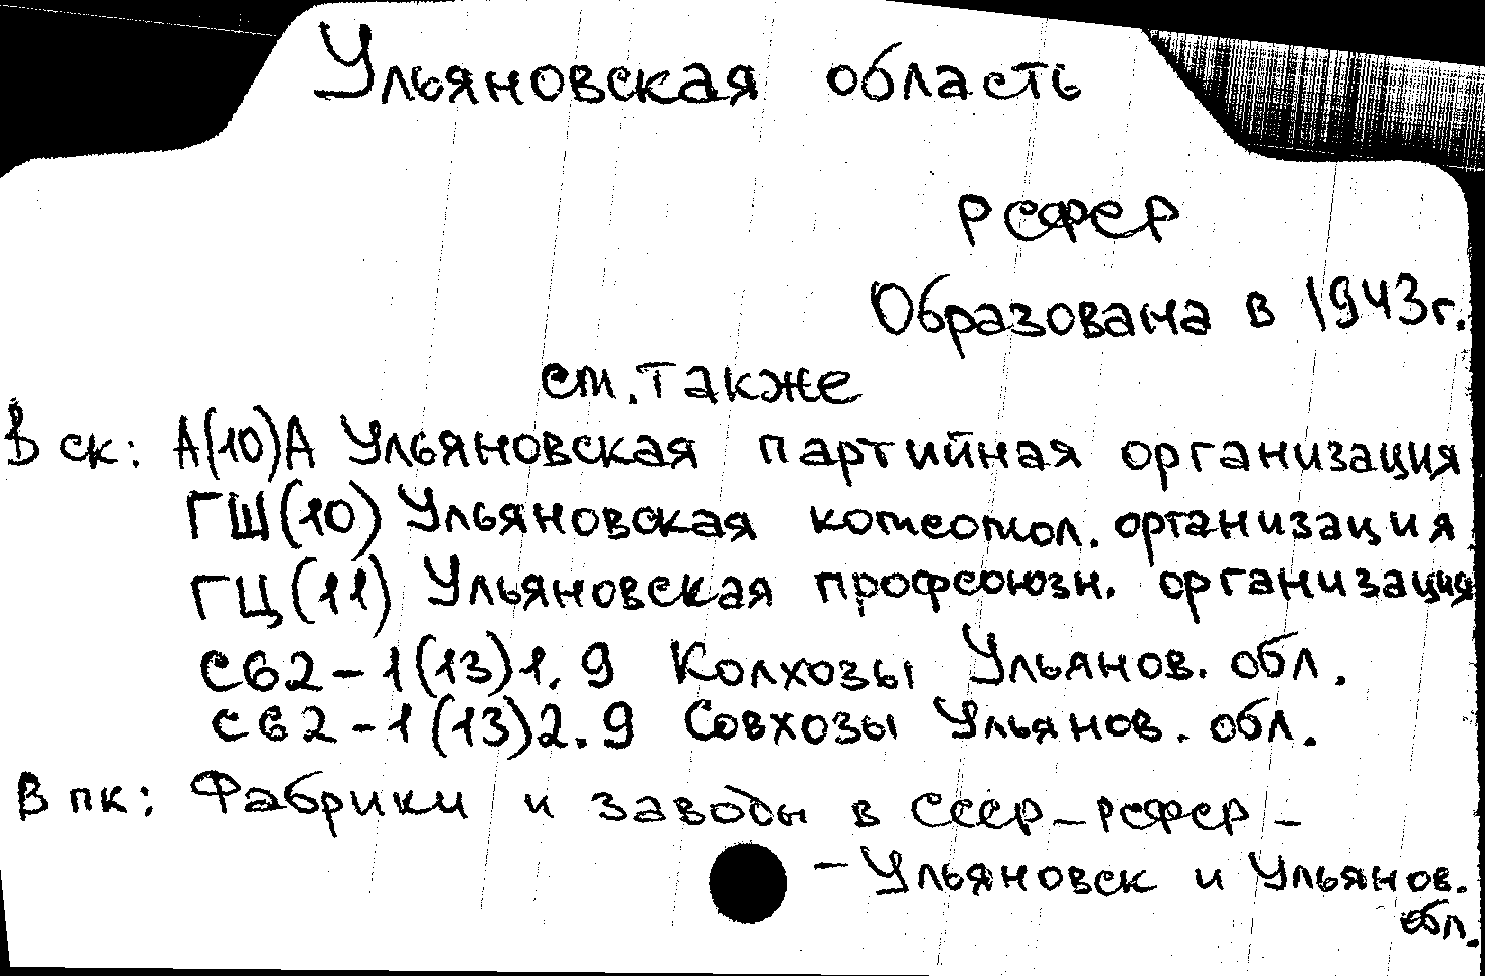 Ульяновская область
РСФСР
Образована в 1943г.
см. также
В ск: А(10)А Ульяновская партийная организация
ГШ(10) Ульяновская комсомол. организация
ГЦ(11) Ульяновская профсоюзн. организация
С62-1(13)1.9 Колхозы Ульянов. обл.
С62-1(13)2.9 Совхозы Ульянов. обл.
В пк: Фабрики и заводы в СССР-РСФСР-
-Ульяновск и Ульянов.
обл.